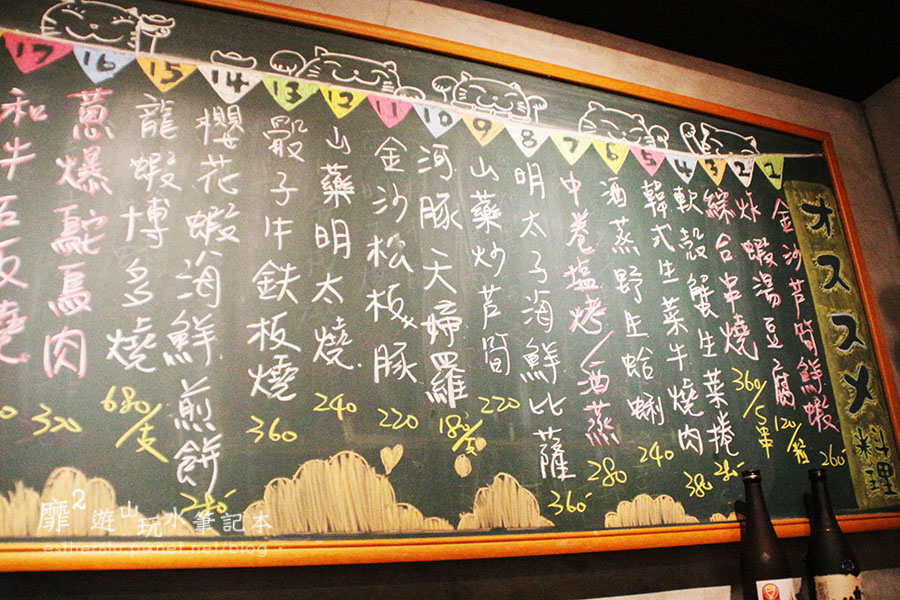 オススメ料理
1 金沙芦筍鮮蝦 260
2 炸蝦湯豆腐 120/粒
3 綜合串燒 360/5串
4 軟殼蟹生菜捲 280
5 韓式生菜牛燒肉 380
6 酒蒸野生蛤蜊 240
7 中卷塩烤/酒蒸 280
8 明太子海鮮比薩 360
9 山藥炒芦筍 220
10 河豚天婦羅 180/支
11 金沙松板豚 220
12 山藥明太燒 240
13 骰子牛鉄板燒 360
14 櫻花蝦海鮮煎餅
15 龍蝦博多燒 680/支
16 蔥爆鴕鳥肉 320
17 和牛石板燒
靡2遊山玩水筆記本